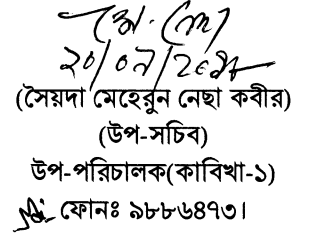 ২০/০৭/২০১৮
(সৈয়দা মেহেরুন নেছা কবীর)
(উপ-সচিব)
উপ-পরিচালক(কাবিখা-১)
ফোনঃ ৯৮৮৬৪৭৩।